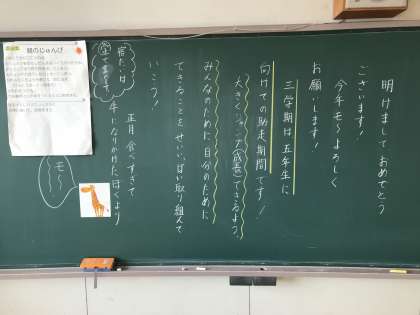 明けまして おめでとう
ございます！
今年モ〜よろしく
お願いします！
三学期は五年生に
向けての助走期間です！
大きくジャンプ(成長)できるよう、
みんなのために、自分のために
できることをせいいっぱい取り組んで
いこう！
正月食べすぎて
牛になりかけた、ぼくより
宿だいは
モ〜
朝のじゅんび